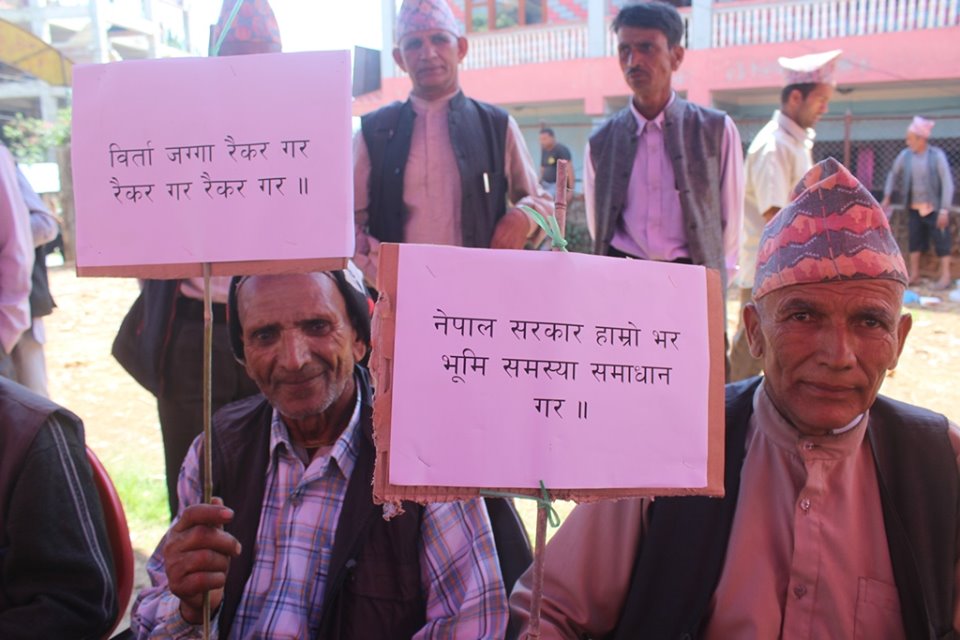 विर्ता जग्गा रैकर गर
रैकर गर रैकर गर ॥
नेपाल सरकार हाम्रो भर
भूमि समस्या समाधान
गर ॥